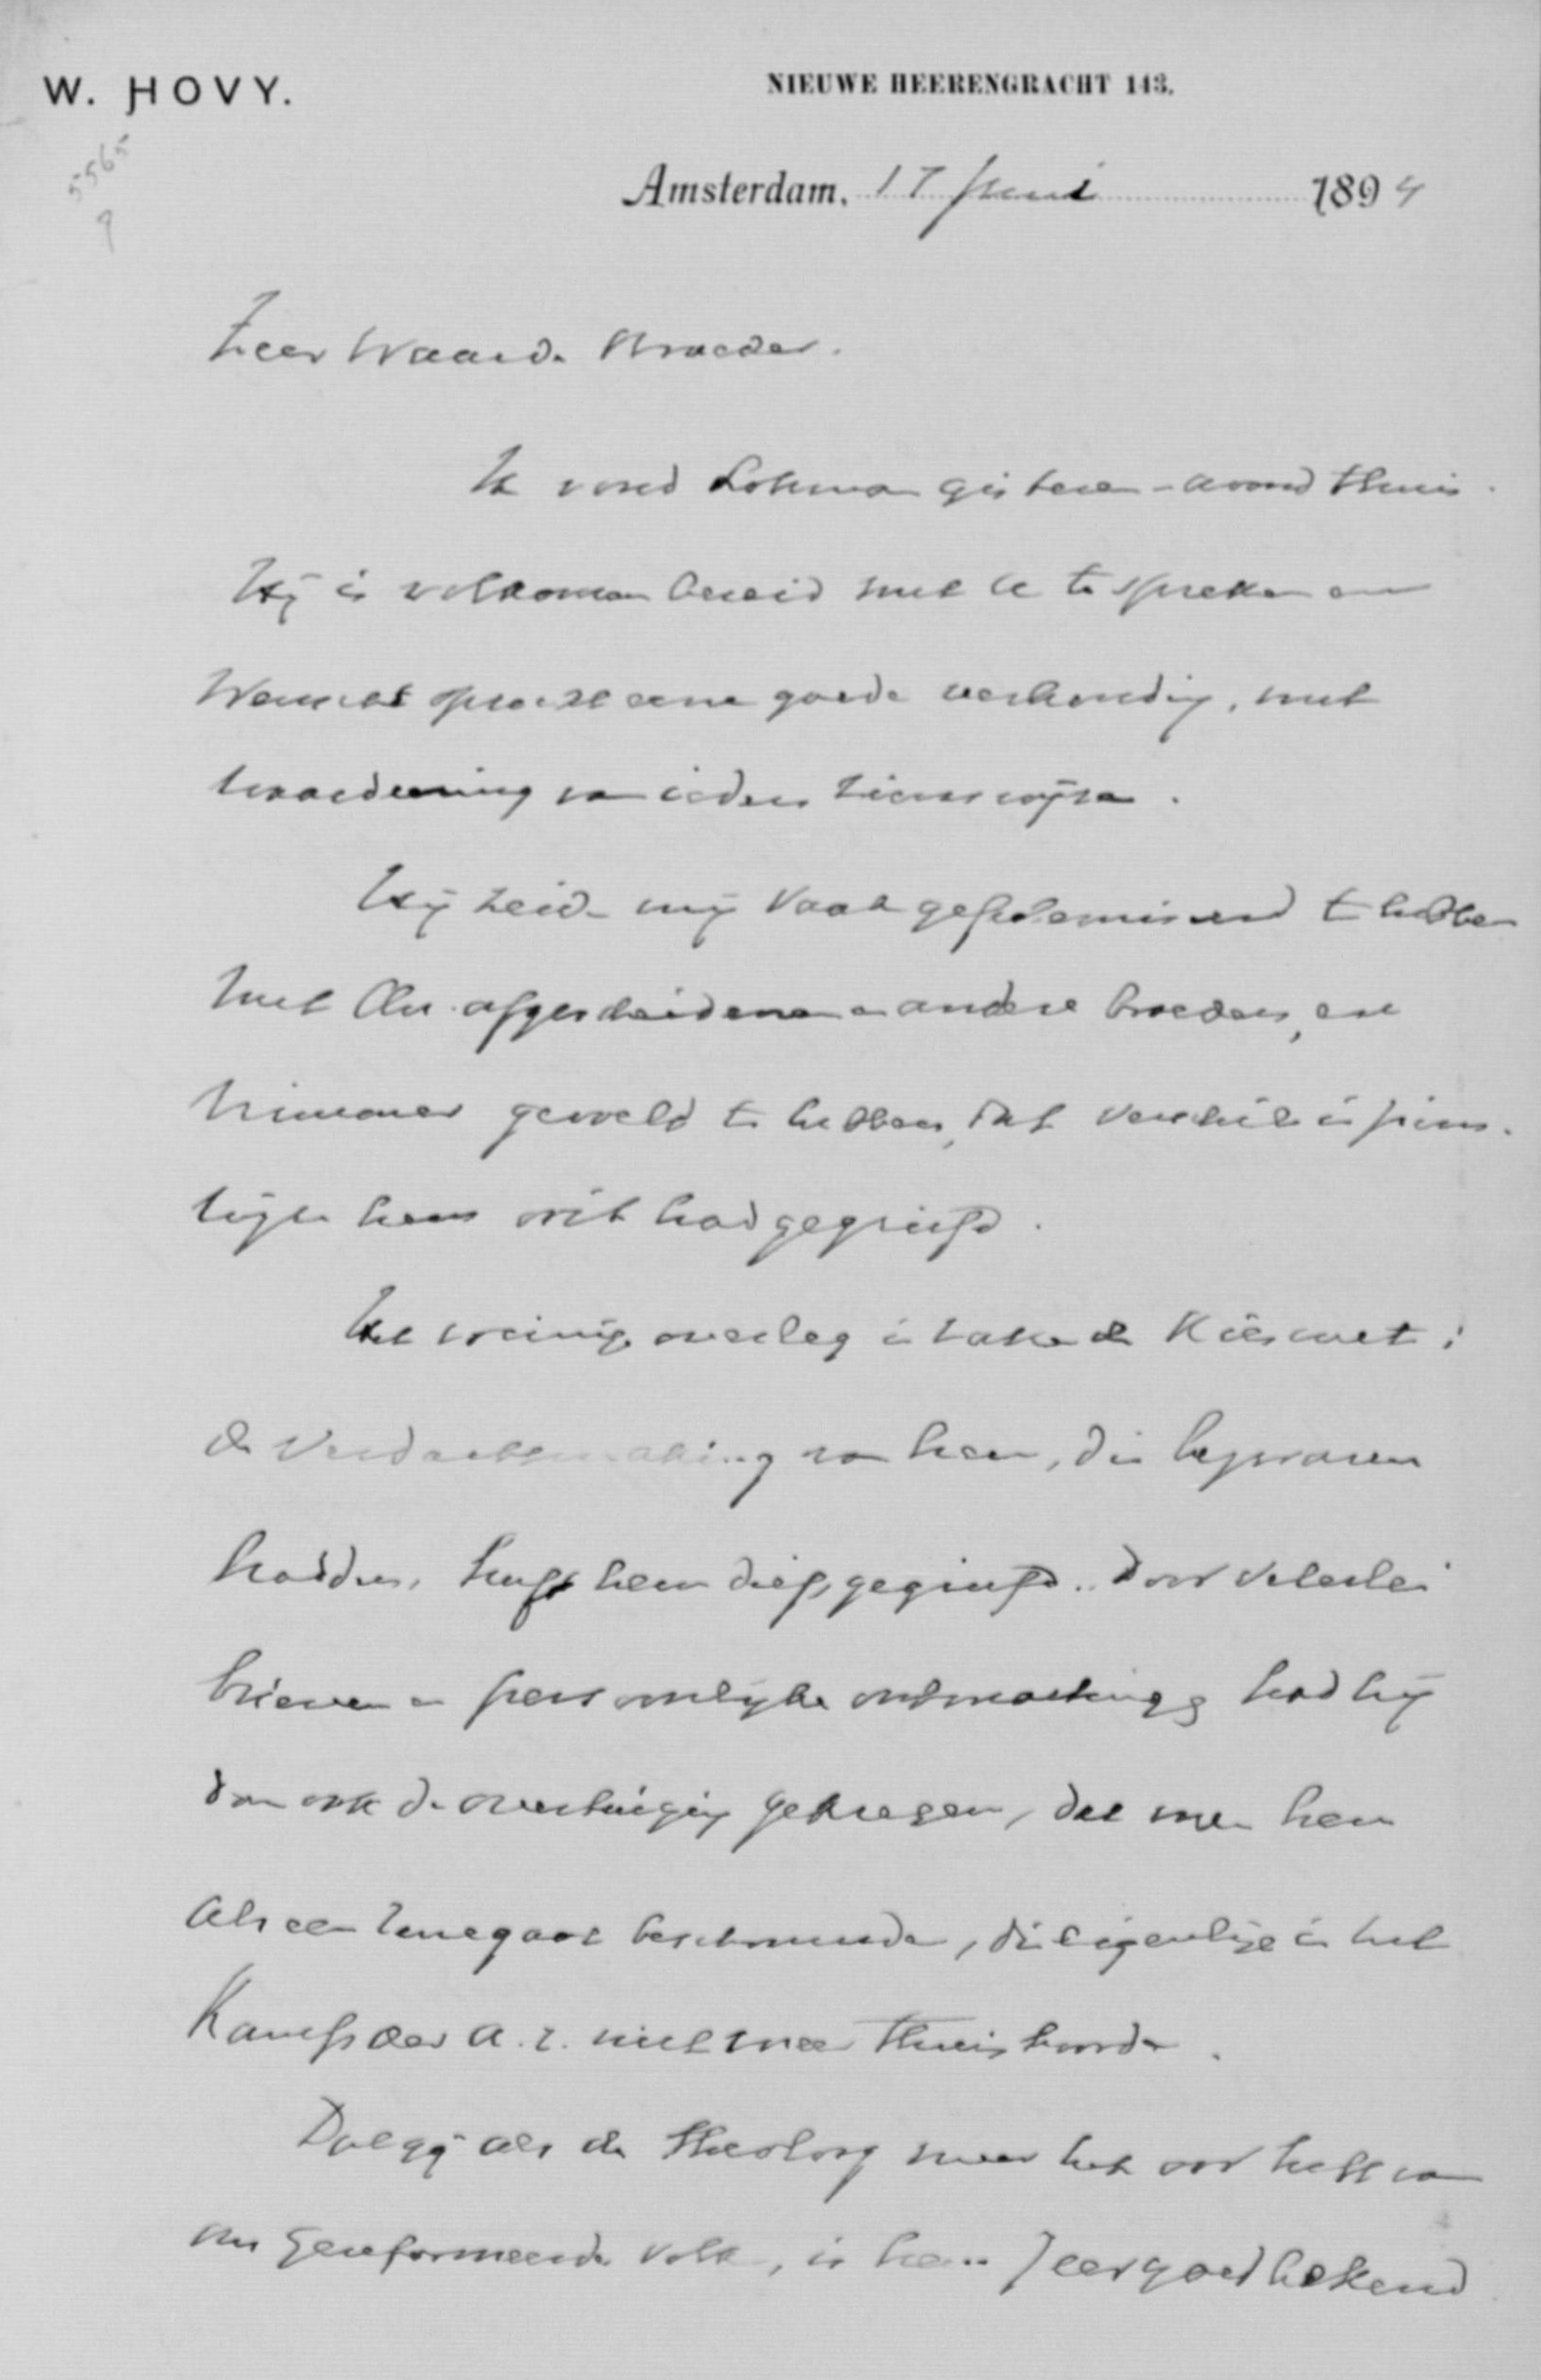 W. HOVY.
NIEUWE HEERENGRACHT 143.
5565
9
Amsterdam, 17 Juni 1894
Zeer Waarde Broeder.
Ik vond Lohman gisteren-avond thuis.
Hij is volkomen bereid met U te spreken en
wenscht oprecht eene goede verhouding, met
waardeering van ieders zienswijze.
Hij zeide mij vaak gepolemiseerd te hebben
met Chr. afgescheidenen en andere broeders, en
nimmer gevoeld te hebben, dat verschil in zienswijze
hem ooit had gegriefd.
Het weinige overleg in zake de Kieswet;
de verdachtmaking van hen, die bezwaren
hadden, heeft hem diep gegriefd.. Door velerlei
brieven en persoonlijke ontmoetingen had hij
dan ook de overtuiging gekregen, dat men hem
als een renegaat beschouwde, die eigenlijk in het
Kamp der a.r. niet meer thuis hoorde.
Dat gij als de theoloog meer het oor hebt van
ons Gereformeerde volk, is hem zeer goed bekend